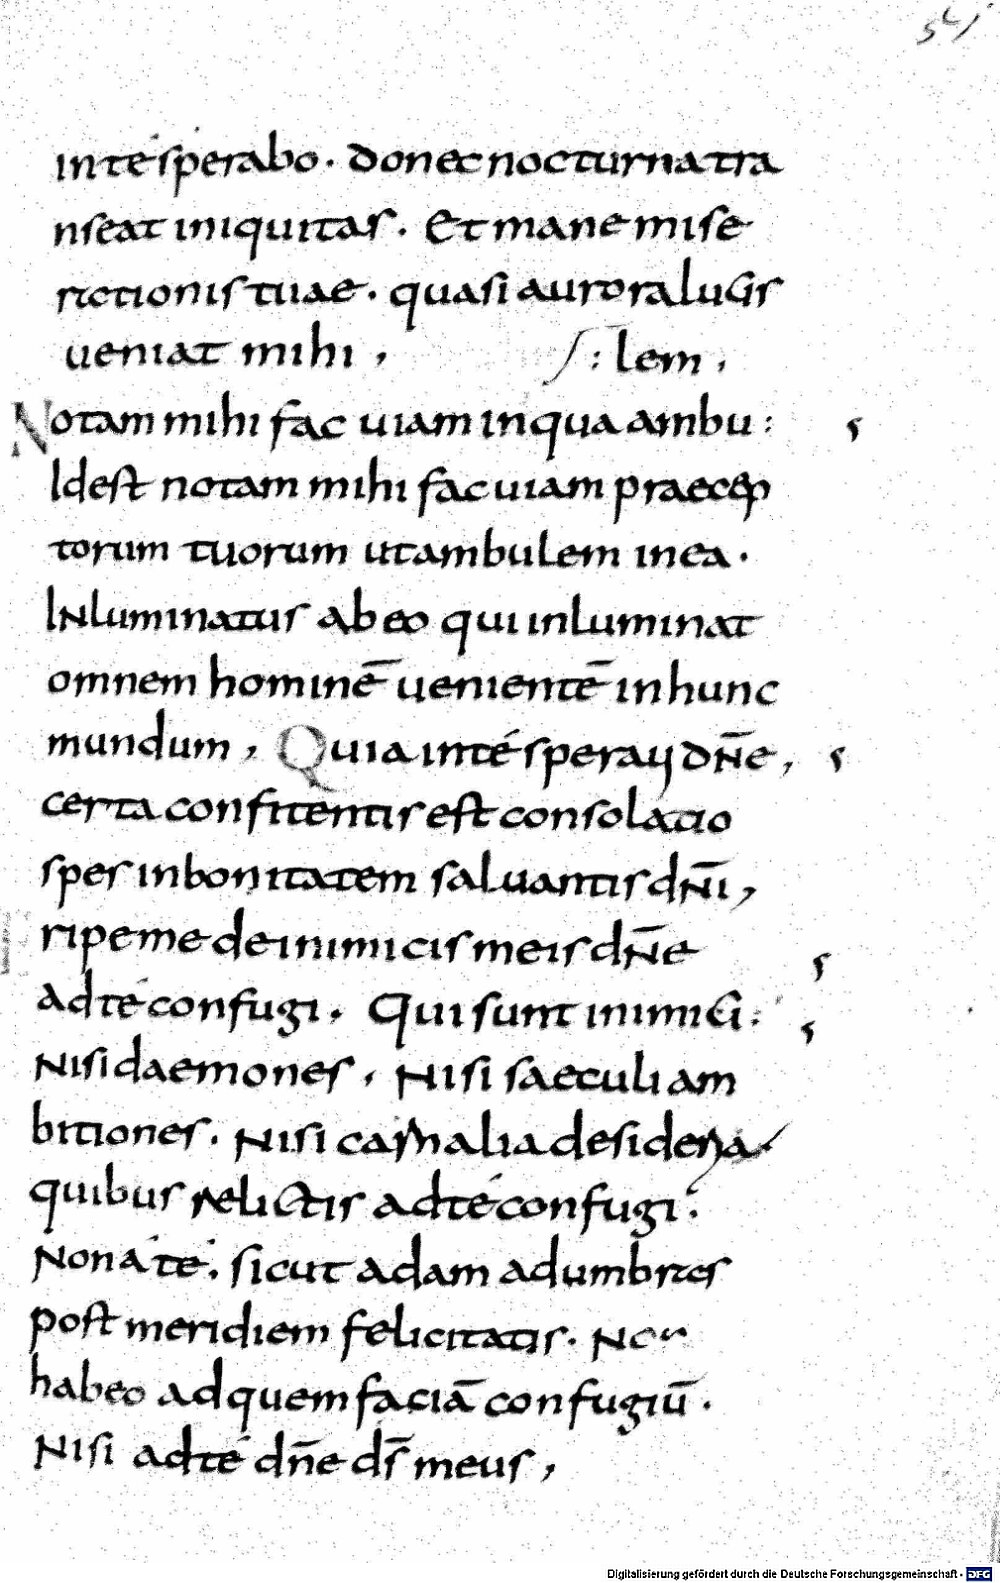 in te sperabo. donec nocturna tra
nseat iniquitas. Et mane mise
rictionis tuae. quasi aurora lucis
ueniat mihi, :lem,
Notam mihi fac uiam in qua ambu:
Idest notam mihi fac uiam praecep
torum tuorum ut ambulem in ea.
INluminatus ab eo qui inluminat
omnem hominē uenientē in hunc
mundum, Quia in te speraui dn̄e,
certa confitentis est consolatio
spes in bonitatem saluantis dn̄i,
ripe me de inimicis meis dn̄e
ad te confugi. Qui sunt inimici:
Nisi daemones, Nisi saeculi am
bitiones. Nisi carnalia desideria
quibus relictis ad te confugi:
Non a te. sicut adam ad umbrices
post meridiem felicitatis. Non
habeo ad quem faciā confugiū.
Nisi ad te dn̄e ds̄ meus,
Digitalisierung gefördert durch die Deutsche Forschungsgemeinschaft - DFG